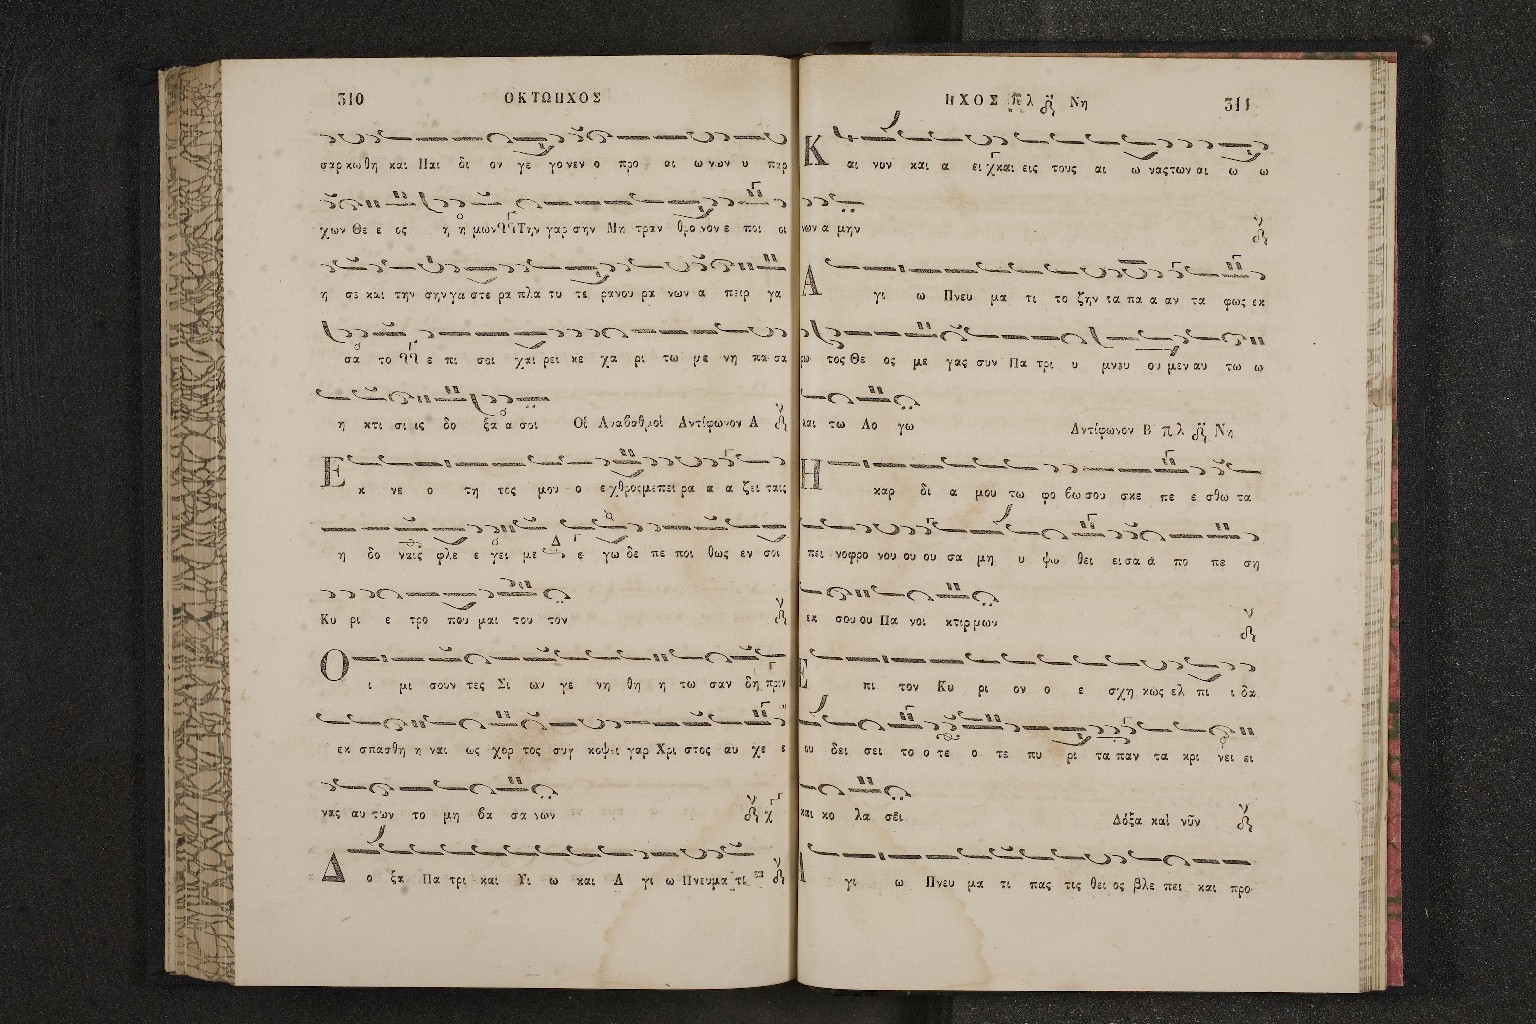 310
ΟΚΤΩΗΧΟΣ
σαρ κω θη και Παι δι ον γε γο νεν ο προ αι ω νων υ παρ
χων Θε ε ος η η μων Την γαρ σην Μη τραν θρο νον ε ποι οι
η σε και την σην γα στε ρα πλα τυ τε ραν ου ρα νων α πειρ γα
σα το ε πι σοι χαι ρει κε χα ρι τω με νη πα σα
η κτι σι ις δο ξα α σοι Οἱ Αναβαθμοὶ Αντίφωνον Α
Εκ νε ο τη τος μου ο ε χθρος με πει ρα α α ζει ταις
η δο ναις φλε ε γει με ε γω δε πε ποι θως εν σοι
Κυ ρι ε τρο που μαι του τον
Οι μι σουν τες Σι ων γε νη θη η τω σαν δη πριν
εκ σπασθη η ναι ως χορ τος συγ κοψει γαρ Χρι στος αυ χε ε
νας αυ των το μη βα σα νων
Δο ξα Πα τρι και Υι ω και Α γι ω Πνευμα τι
ΗΧΟΣ πλ Νη
311
Και νυν και α ει και εις τους αι ω νας των αι ω ω
νων α μην
Αγι ω Πνευ μα τι το ζην τα πα α αν τα φως εκ
φω τος Θε ος με γας συν Πα τρι υ μνου ου μεν αυ τω ω
και τω Λο γω Αντίφωνον Β πλ Νη
Η καρ δι α μου τω φο βω σου σκε πε ε σθω τα
πει νοφρο νου ου ου σα μη υ ψω θει εισα ά πο πε ση
εκ σου ου Πα νοι κτιρ μων
Επι τον Κυ ρι ον ο ε σχη κως ελ πι ι δα
ου δει σει το ο τε ο τε πυ ρι τα παν τα κρι νει ει
και κο λα σει Δόξα καὶ νῦν
Αγι ω Πνευ μα τι πας τις θει ος βλε πει και προ